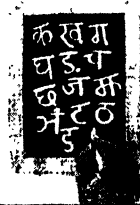 क ख ग
घ ङ च
छ ज झ
ञ ट ठ
ड